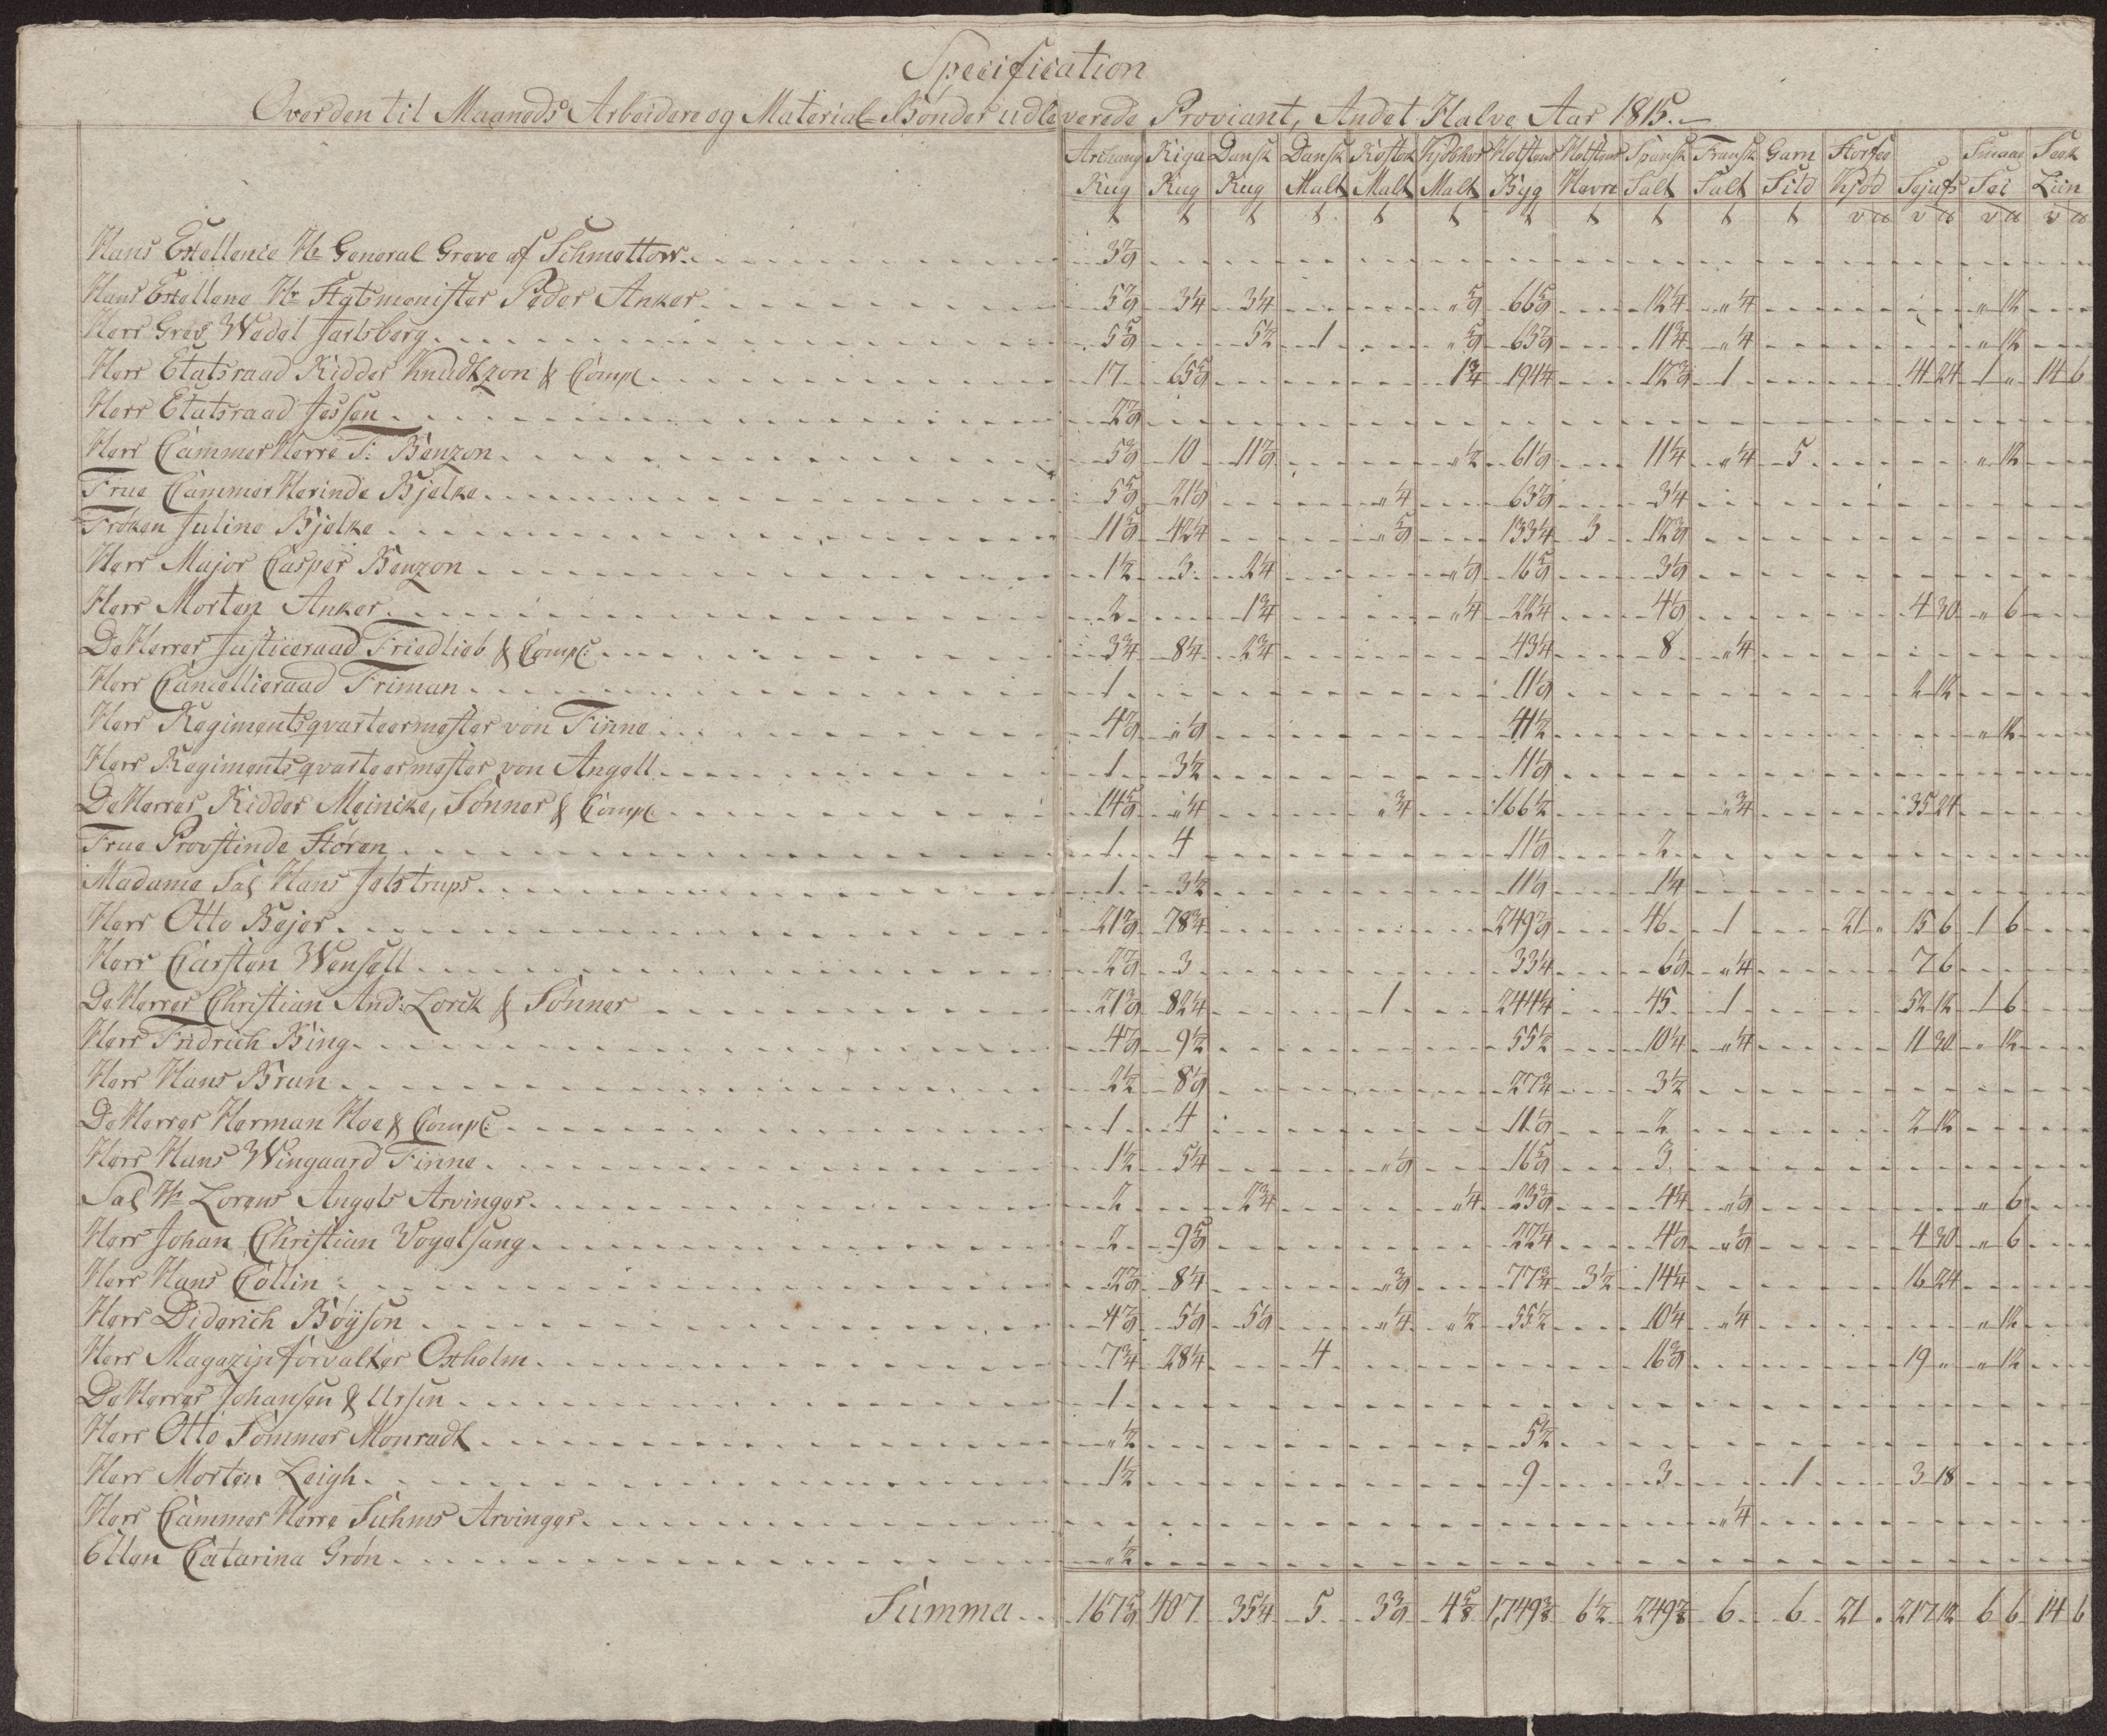 Specification
Over den til Maaneds Arbeidere og Material-Bönder udleverede Proviant, Andet Halve Aar 1815.
Archang Rug | Riga Rug | Dansk Rug | Dansk Malt | Rostok Malt | Kjöbhvn Malt | Holsteens Byg | Holsteens Havre | Spansk Salt | Fransk Salt | Garn Sild | Kjöd | Sejufs | Smaae Sei | Liin
Hans Exellence Hr General Greve af Schmettow 3⅞
Hans Exellene Hr Statsmenister Peder Anker 5⅞ 3¼ 3¼ " ⅝ 66⅝ 12¼ " ¼ " 12
Herr Grev Wedel Jarlsberg 5⅝ 5½ 1 " ⅝ 63⅞ 11¾ " ¼ " 12
Herr Etatsraad Ridder Knudtzon & Compe 17 65⅝ 1¾ 194¼ 12⅜ 1 41 24 1 " 14 6
Herr Etatsraad Jessen 2⅞
Herr CammerHerre T: Benzon 5⅜ 10 11⅞ " ½ 61⅛ 11¼ " ¼ 5 " 12
Frue CammerHerinde Bjelke 5⅝ 21⅛ " ¼ 63⅞ 3¼
Fröken Juline Bjelke 11⅝ 42¼ " ⅝ 133¼ 3 12⅜
Herr Major Casper Benzon 1½ 3 2¼ " ⅛ 16⅝ 3⅛
Herr Morten Anker 2 1¾ " ¼ 22¼ 4⅛ 4 30 " 6
De Herrer Justiceraad Friedlieb & Compe 3¾ 8¼ 2¾ 43¼ 8 " ¼
Herr Cancellieraad Friman 1 11⅛ 2 12
Herr Regimentsqvarteermester von Finne 4⅞ " ⅛ 41½ " 12
Herr Regimentsqvarteermester von Angell 1 3½ 11⅛
De Herrer Ridder Meincke, Sönner & Compe 14⅝ " ¼ " ¾ 166½ " ¾ 35 24
Frue Provstinde Stören 1 4 11⅛ 2
Madame Sal Hans Jelstrups 1 3½ 11⅛ 1¼
Herr Otto Bejer 21⅜ 78¾ 249⅞ 46 1 21 " 15 6 1 6
Herr Carsten Wensell 2⅞ 3 33¼ 6⅛ " ¼ 7 6
De Herrer Christian And: Lorck & Sönner 21⅜ 82¼ 1 244¼ 45 1 52 12 1 6
Herr Fridrich Bing 4⅞ 9½ 55½ 10¼ " ¼ 11 30 " 12
Herr Hans Brun 2½ 8⅛ 27¾ 3½
De Herrer Herman Hoe & Compe 1 4 11⅛ 2 2 12
Herr Hans Wingaard Finne 1½ 5¼ " ⅛ 16⅝ 3
Sal Hr Lorens Angels Arvinger 2 2¾ " ¼ 23⅜ 4¼ " ⅛ " 6
Herr Johan Christian Vogelsang 2 9⅝ 22¼ 4⅛ " ⅜ 4 30 " 6
Herr Hans Collin 2⅞ 8¼ " ⅜ 77¾ 3½ 14¼ 16 24
Herr Diderich Böyson 4⅞ 5⅛ 5⅛ " ¼ " ½ 55½ 10¼ " ¼ " 12
Herr Magazinforvalter Oxholm 7¾ 28¼ 4 16⅜ 19 " " 12
De Herrer Johansen & Ursin 1
Herr Otto Sommer Monradt " ½ 5½
Herr Morten Leigh 1½ 9 3 1 3 18
Herr Cammer Herre Suhms Arvinger " ¼
Ellen Catarina Grön " ½
Summa 167⅝ 407 35¼ 5 3⅜ 4⅝ 1,749⅜ 6½ 249⅞ 6 6 21 " 217 12 6 6 14 6